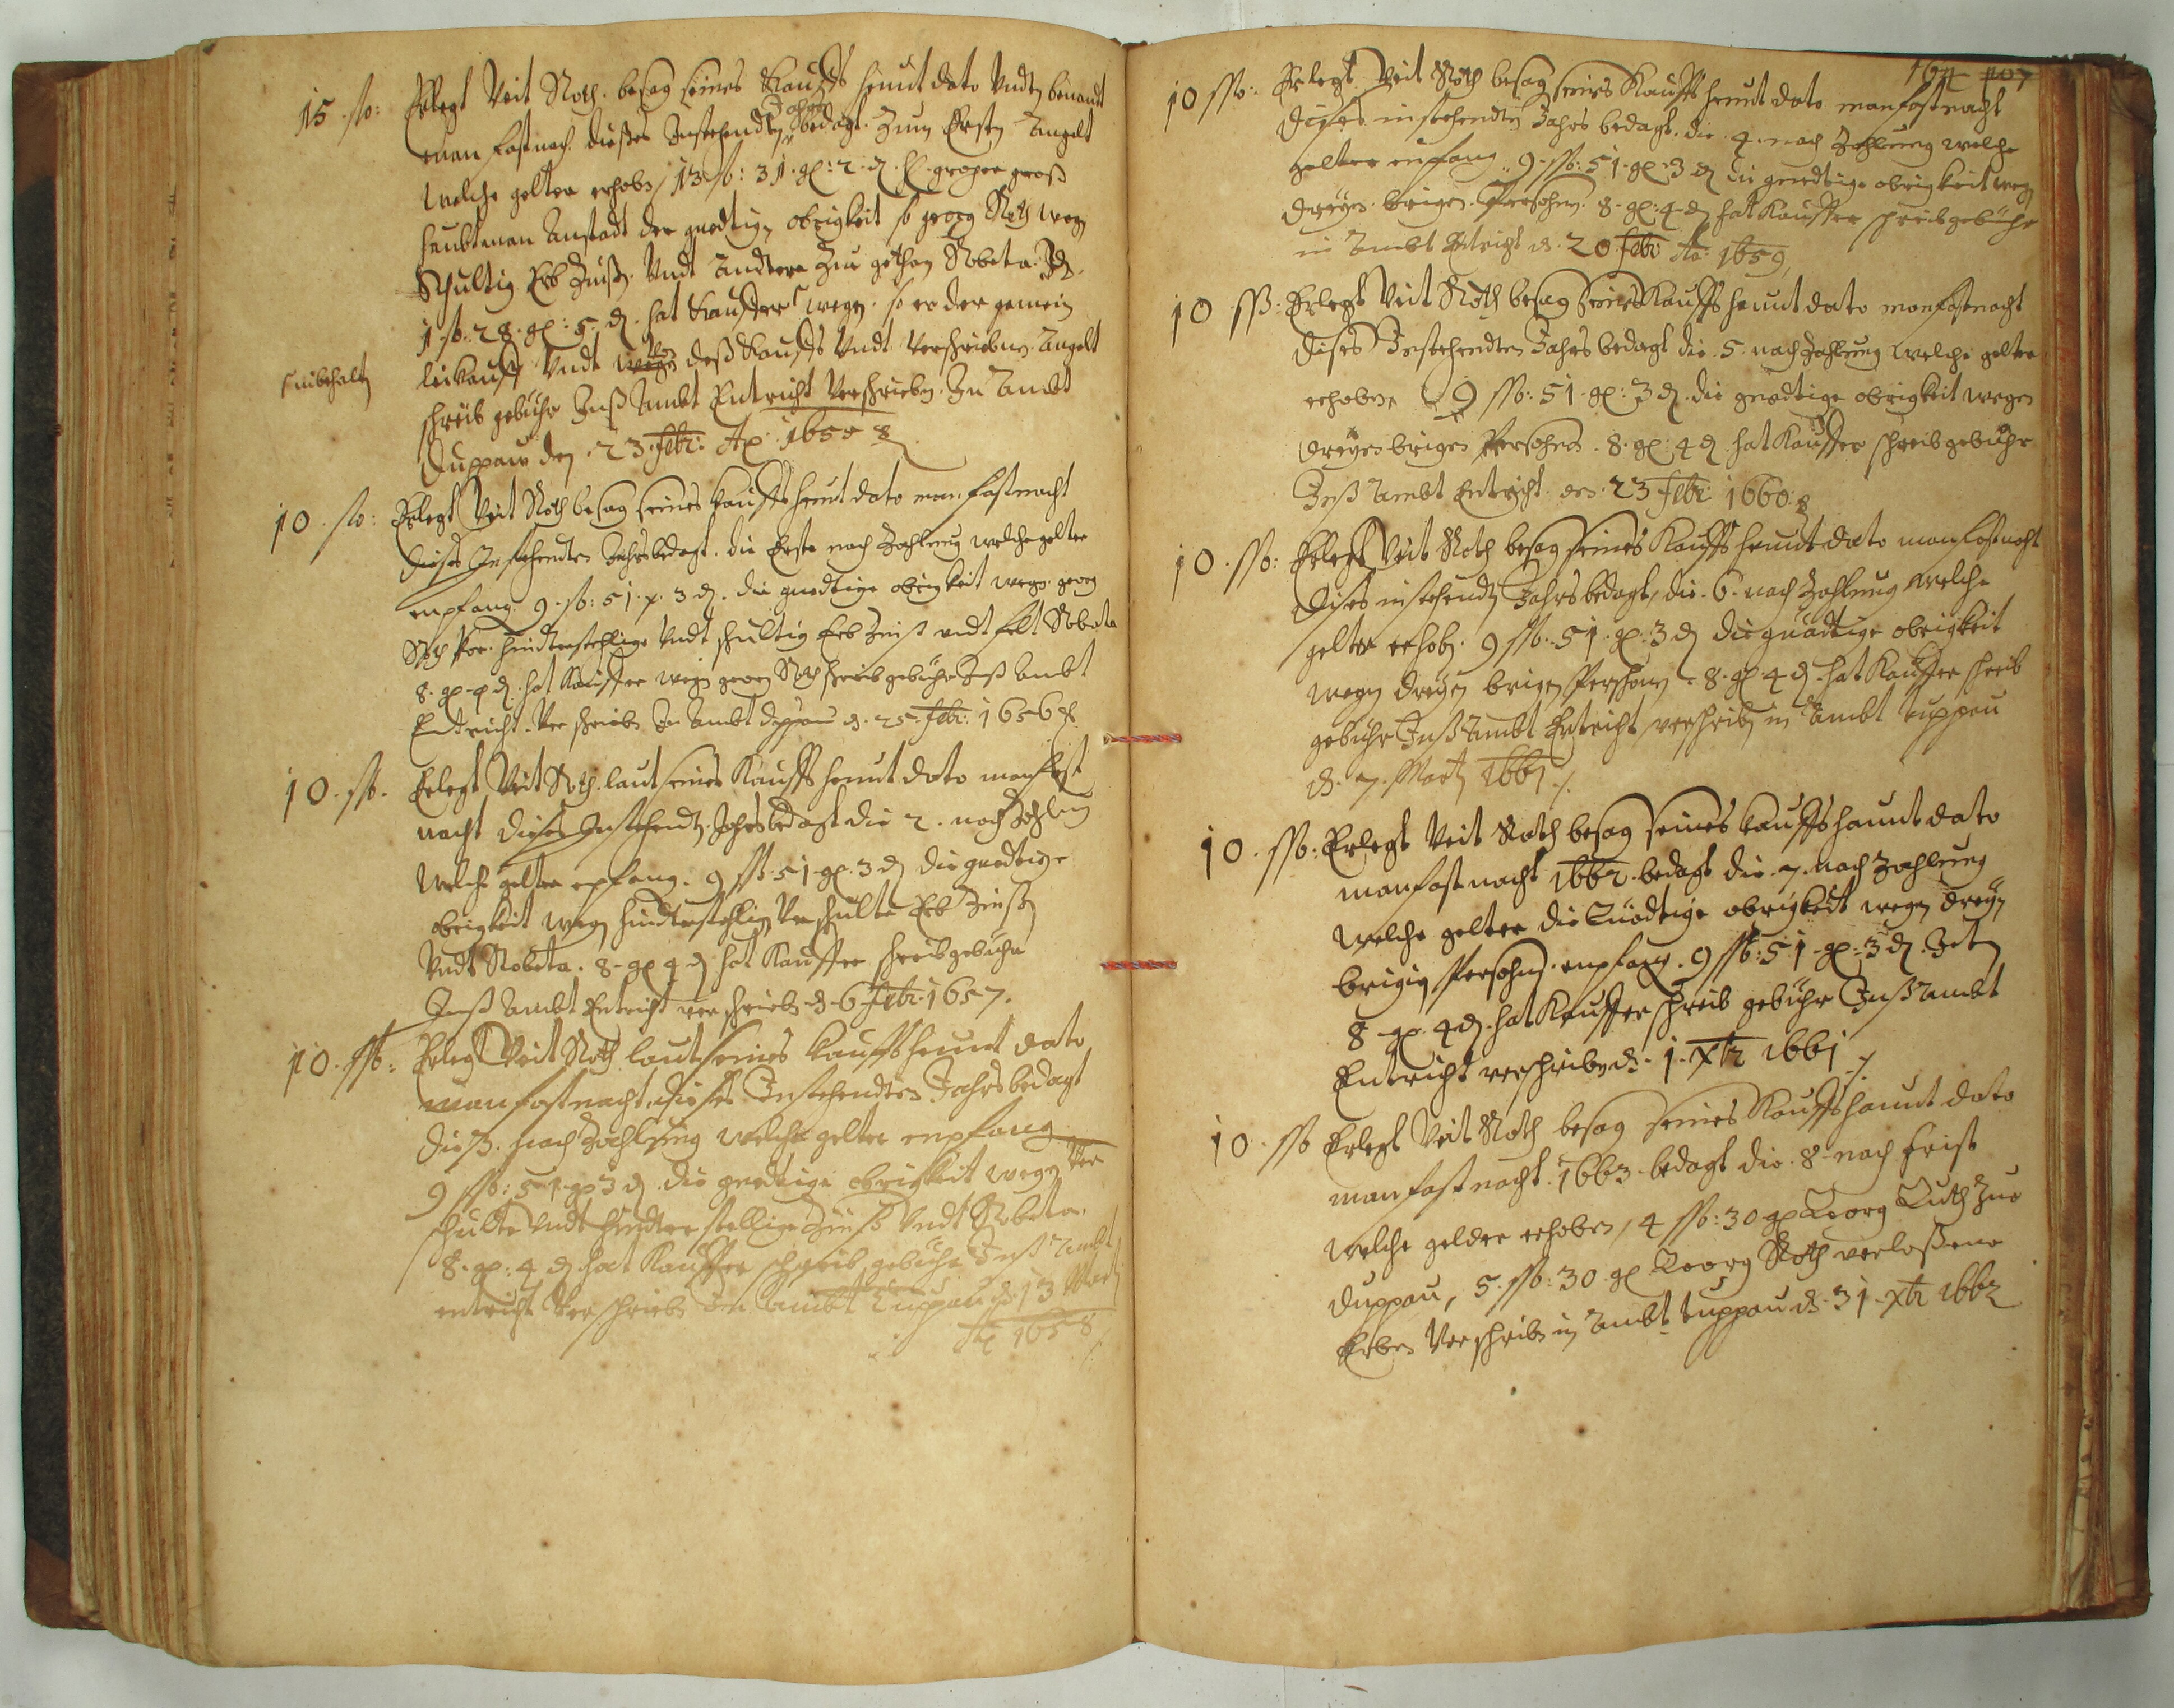 15 ſo: Erlegt Veit Roth. besag seines Kauffs heunt dato Vndten benandt
man fastnach. dießes Instehendten Jahrs bedagt. Zum Ersten Angelt
Welche gelter erhoben, 13 ſo: 31. gl: 2. d.
haubtman Anstadt der gnedtigen obrigkeit so georg Roth wegen
Schultig Erb Zinßen. Vndt Andtere Zue gethan Robeta.
1. ſo: 28. gl: 5. d. hat Kauffer wegen. so er der gemein
Inbehalten
leikauff Vndt wegen deß Kauffs Vndt Verschriebnen Angelt
schreib gebühr Inß Ambt Entricht Verschrieben. In Ambt
Duppau den. 23. Febr: Ao: 1655
10. ſo: Erlegt Veit Roth besag seines kauffs heunt dato man fastnacht
dieses Instehendten Jahrs bedagt. die Erste nach Zahlung welche gelter
empfang. 9. ſo: 51. gl. 3 d. die gnedtige obrigkeit wegen georg
Roth Vor. hindterstehlige Vndt schultig Erb Zinß vndt Robeta
8. gl. 4 d. hat Kauffer wegen georg Roth schreib gebühr Inß Ambt
Endtricht. Ver schrieben In Ambt Duppau d. 25. Febr: 1656
10. ſſo. Erlegt Veit Roth. laut seines Kauffs heunt dato man fast
nacht dieses Instehendten Jahrs bedagt die 2. nach Zahlung
Welche gelter epfang. 9 ſſo: 51. gl. 3 d. die gnedtige
obrigkeit wegen hindterstehligen Verschulte Erb Zinßen
Vndt Robeta. 8. gl 4 d. hat Kauffer schreib gebühr
Inß Ambt Entricht ver schrieben d. 6 Febr: 1657.
10. ſſo: Erlegt Veit Roth laut seines kauffs heunt dato
man fastnacht, dieses Instehendten Jahrs bedagt
die 3. nach Zahlung welche gelter empfang
9 ſſo: 51. gl 3 d. die gnedtige obrigkeit wegen Ver
schulte Vndt hindter stellige Zinß Vndt Robeta.
8. gl: 4 d. hat Kauffer schreib gebühr Inß Ambt
entricht Verschrieben In Ambt Tuppau d. 13 Marti
Ao 1658
164 107
10 ſſo: Erlegt Veit Roth besag seines Kauffs heunt dato man fastnacht
dieses instehendten Jahrs bedagt. die. 4. nach Zahlung welche
gelter empfang. 9. ſſo: 51. gl. 3 d die gnedtige obrigkeit wegen
dreyen. brigen. Persohnen. 8. gl: 4 d hat Kauffer schreib gebühr
in Ambt Entricht d. 20 Febr Ao: 1659,
10 ſſo: Erlegt Veit Roth besag seines Kauffs heunt dato man fastnacht
dieses Instehendten Jahrs bedagt die. 5. nach Zahlung welche gelter
erhoben, 9 ſſo: 51. gl: 3 d. die gnedtige obrigkeit wegen
dreyen brigen Persohnen. 8. gl: 4 d. hat Kauffer schreib gebühr
Inß Ambt Entricht. den. 23 Febr 1660.
10. ſſo: Erlegt Veit Roth besag seines Kauffs heunt dato man fastnacht
dieses instehendten Jahrs bedagt, die. 6. nach Zahlung Welche
gelter erhoben. 9 ſſo. 51. gl. 3 d die gnädtige obrigkeit
wegen dreyen brigen Persohnen. 8. gl 4 d. hat Kauffer schreib
gebühr Inß Ambt Entricht, verschrieben in Ambt tuppau
d. 7. Marti 1661 ./.
10. ſſo: Erlegt Veit Roth besag seines kauffs heunt dato
man fastnacht 1662. bedagt die. 7. nach Zahlung
Welche gelter die Gnädtige obrigkeit wegen dreyen
brigen Persohnen. empfang. 9 ſſo: 51. gl: 3 d.
8. gl. 4 d. hat Kauffer schreib gebühr Inß Ambt
Entricht verschrieben d. 1. Xbr 1661 ./.
10. ſſo Erlegt Veit Roth besag seines Kauffs heunt dato
man fastnacht. 1663. bedagt die. 8. nach frist
Welche gelder erhoben, 4 ſſo: 30 gl Georg Zue
Duppau, 5. ſſo: 30. gl Georg Roth verlaßene
Erben Verschrieben in Ambt tuppau d. 31. Xbr 1662